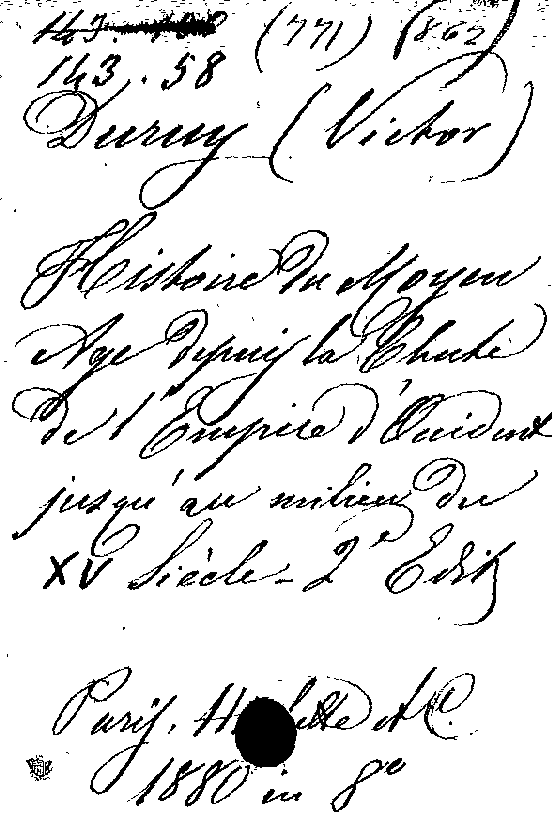 143. (771) (862)
143. 58
Duruy (Victor)
Histoire du Moyen
Age depuis la Chute
de l'Empire d'Occident
jusqu'au milieu du
XV Siècle - 2e Edit
Paris, Hachette et C.
1880 in 8o